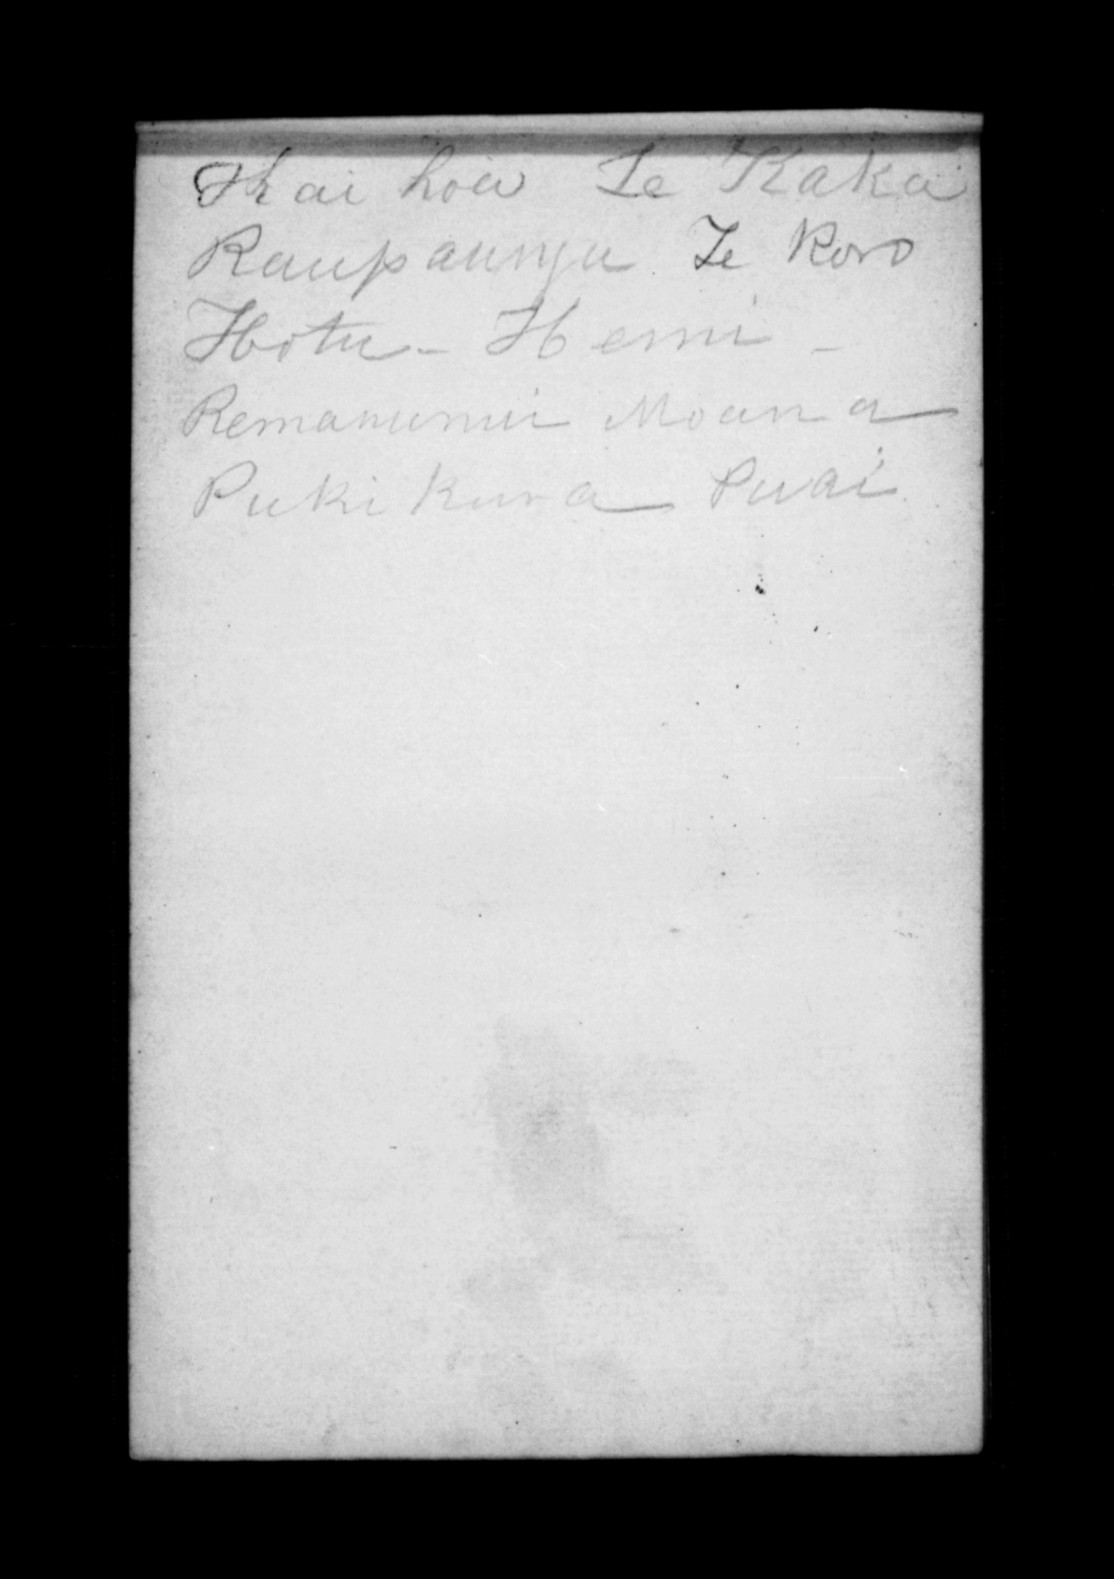 Kai hoa Te Kaka
Raupaunga Te Koro
Hotu - Hemi -
Remanumui Moana
Puki Kura Puai